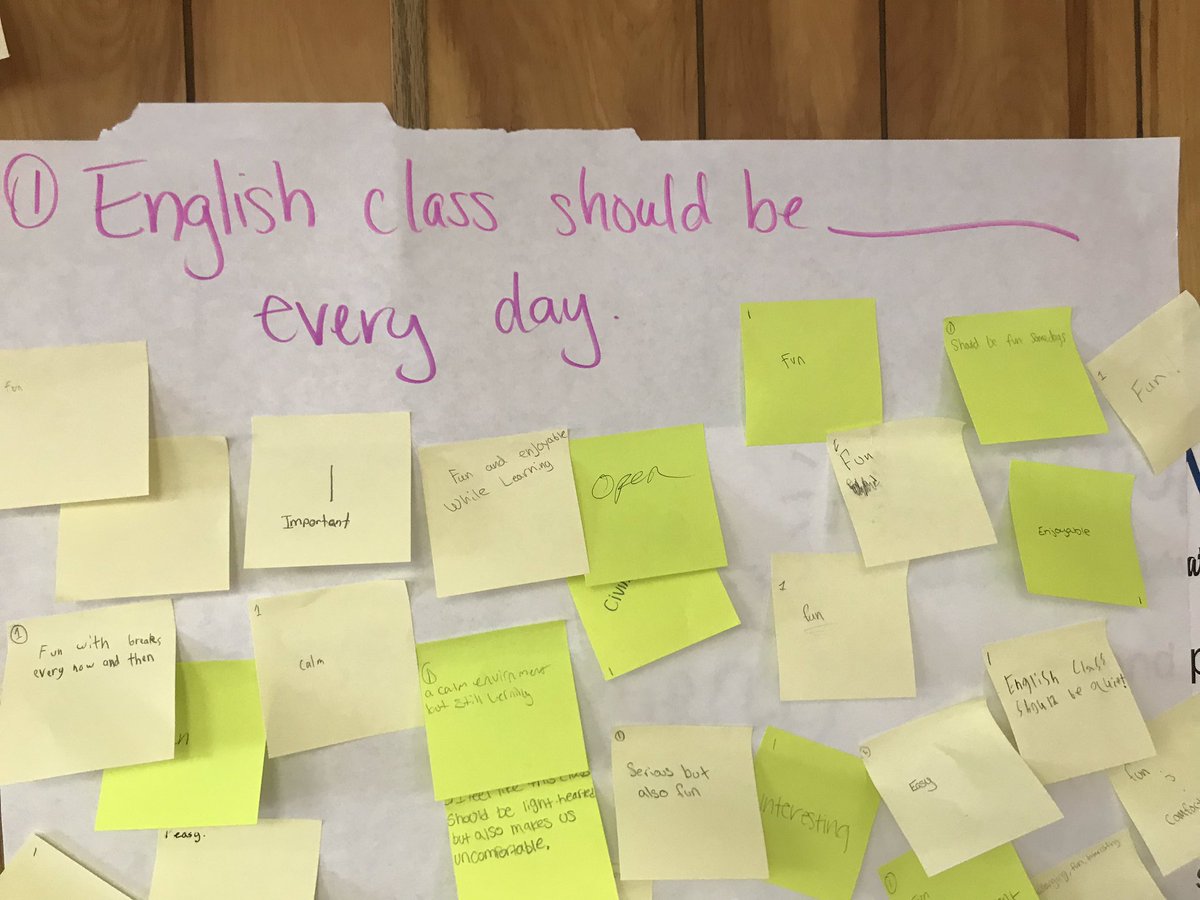 ① English class should be ________
every day.
Fun
1
Important
Fun and enjoyable
while Learning
Open
1
Fun
①
Should be fun somedays
1
Fun!
1
Fun
Enjoyable
1
①
Fun with breaks
every now and then
1
calm
①
a calm envirnment
but still lernilly
1
1
fun
1
English Class
should be quiet!
easy.
1
I feel like this class
should be light-hearted
but also makes us
uncomfortable.
①
Serious but
also fun
1
interesting
①
Easy
fun &
①